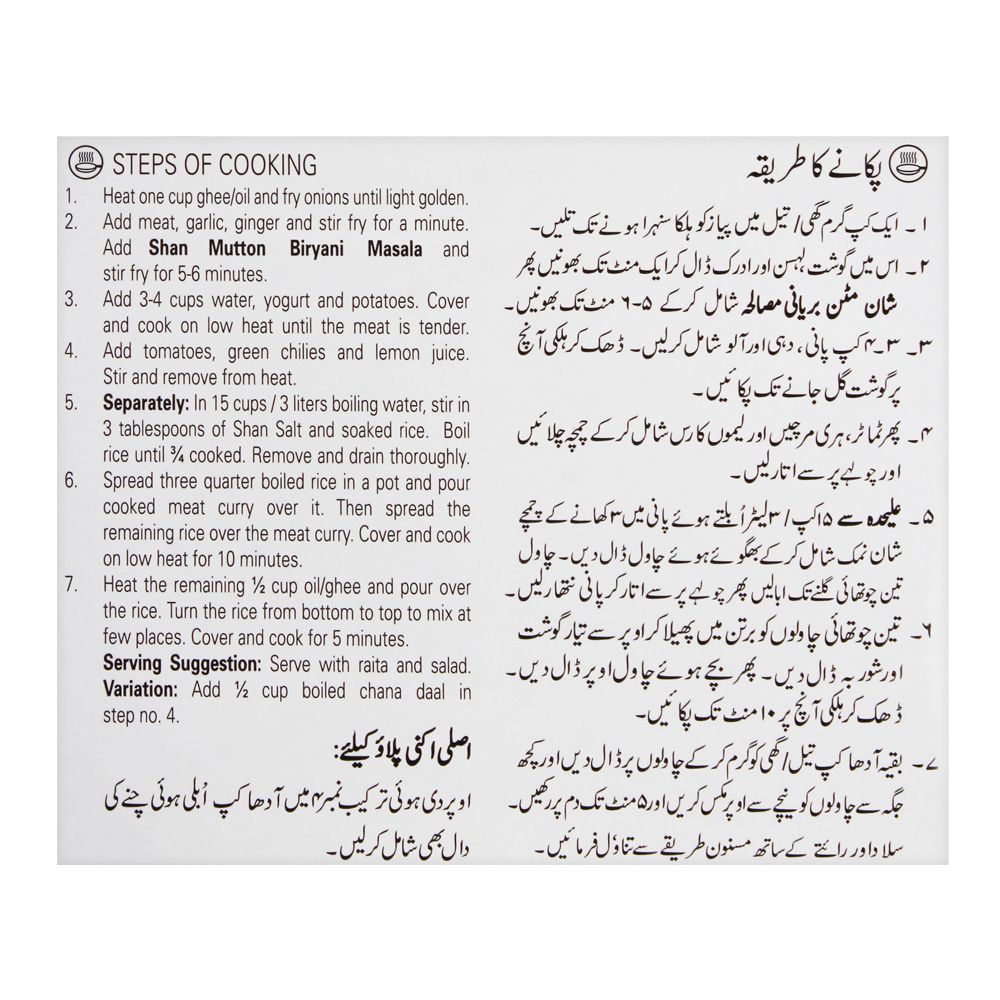 STEPS OF COOKING
1. Heat one cup ghee/oil and fry onions until light golden.
2. Add meat, garlic, ginger and stir fry for a minute.
Add Shan Mutton Biryani Masala and
stir fry for 5-6 minutes.
3. Add 3-4 cups water, yogurt and potatoes. Cover
and cook on low heat until the meat is tender.
4. Add tomatoes, green chilies and lemon juice.
Stir and remove from heat.
5. Separately: In 15 cups / 3 liters boiling water, stir in
3 tablespoons of Shan Salt and soaked rice. Boil
rice until ¾ cooked. Remove and drain thoroughly.
6. Spread three quarter boiled rice in a pot and pour
cooked meat curry over it. Then spread the
remaining rice over the meat curry. Cover and cook
on low heat for 10 minutes.
7. Heat the remaining ½ cup oil/ghee and pour over
the rice. Turn the rice from bottom to top to mix at
few places. Cover and cook for 5 minutes.
Serving Suggestion: Serve with raita and salad.
Variation: Add ½ cup boiled chana daal in
step no. 4.
اصلی اکنی پلاؤ کیلئے:
اوپر دی ہوئی ترکیب نمبر ۴ میں آدھا کپ اُبلی ہوئی چنے کی
دال بھی شامل کرلیں۔
پکانے کا طریقہ
۱۔ ایک کپ گرم گھی/تیل میں پیاز کو ہلکا سنہرا ہونے تک تلیں۔
۲۔ اس میں گوشت لہسن اور ادرک ڈال کر ایک منٹ تک بھونیں پھر
شان مٹن بریانی مصالحہ شامل کرکے ۵-۶ منٹ تک بھونیں۔
۳۔ ۳-۴ کپ پانی، دہی اور آلو شامل کرلیں۔ ڈھک کر ہلکی آنچ
پر گوشت گل جانے تک پکائیں۔
۴۔ پھر ٹماٹر، ہری مرچیں اور لیموں کا رس شامل کرکے چمچہ چلائیں
اور چولہے پر سے اتارلیں۔
۵۔ علیحدہ سے ۱۵ کپ/۳ لیٹر اُبلتے ہوئے پانی میں ۳ کھانے کے چمچے
شان نمک شامل کرکے بھگوئے ہوئے چاول ڈال دیں۔ چاول
تین چوتھائی گلنے تک ابالیں پھر چولہے پر سے اتار کر پانی نتھارلیں۔
۶۔ تین چوتھائی چاولوں کو برتن میں پھیلا کر اوپر سے تیار گوشت
اور شوربہ ڈال دیں۔ پھر بچے ہوئے چاول اوپر ڈال دیں۔
ڈھک کر ہلکی آنچ پر ۱۰ منٹ تک پکائیں۔
۷۔ بقیہ آدھا کپ تیل/گھی کو گرم کرکے چاولوں پر ڈال دیں اور کچھ
جگہ سے چاولوں کو نیچے سے اوپر مکس کریں اور ۵ منٹ تک دم پر رکھیں۔
سلاد اور رائتے کے ساتھ مسنون طریقے سے تناؤل فرمائیں۔